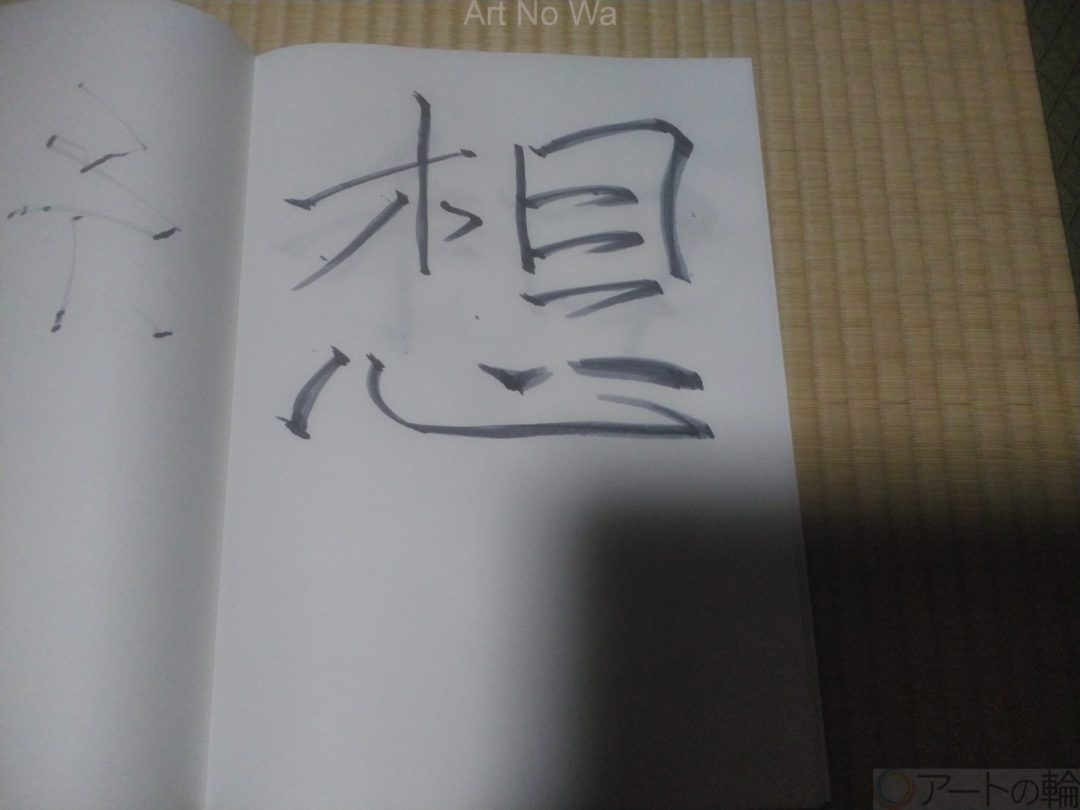 Art No Wa
想
アートの輪